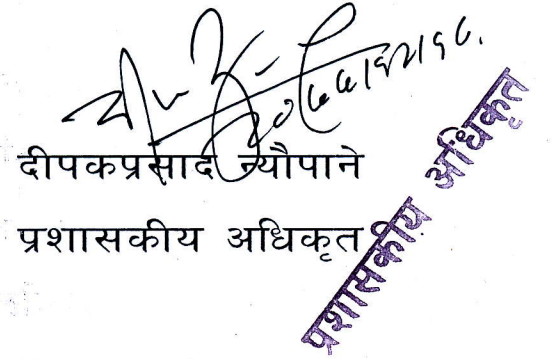 दीपकप्रसाद न्यौपाने
प्रशासकीय अधिकृत
प्रशासकीय अधिकृत